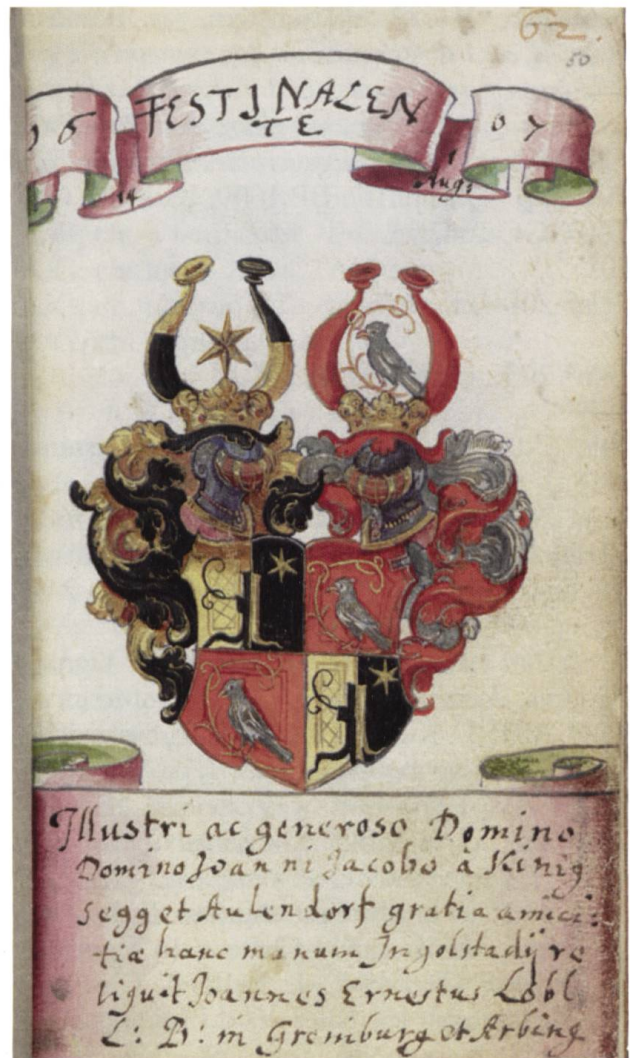 62.
50
16 FESTINALEN 07
TE
14 1
Aug:
Illustri ac generoso Domino
Domino Joanni Jacobo à Kinig
segg et Aulendorf gratia amici:
tiæ hanc manum Ingolstadij re
liquit Joannes Ernestus Löbl
L: B: in Greinburg et Arbing